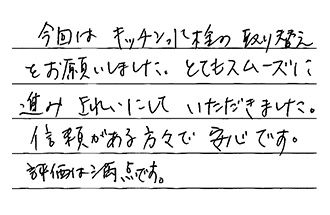 今回は キッチン水栓の取り替え
をお願いしました。とてもスムーズに
進み きれいにして いただきました。
信頼がある方々で 安心です。
評価は満点です。